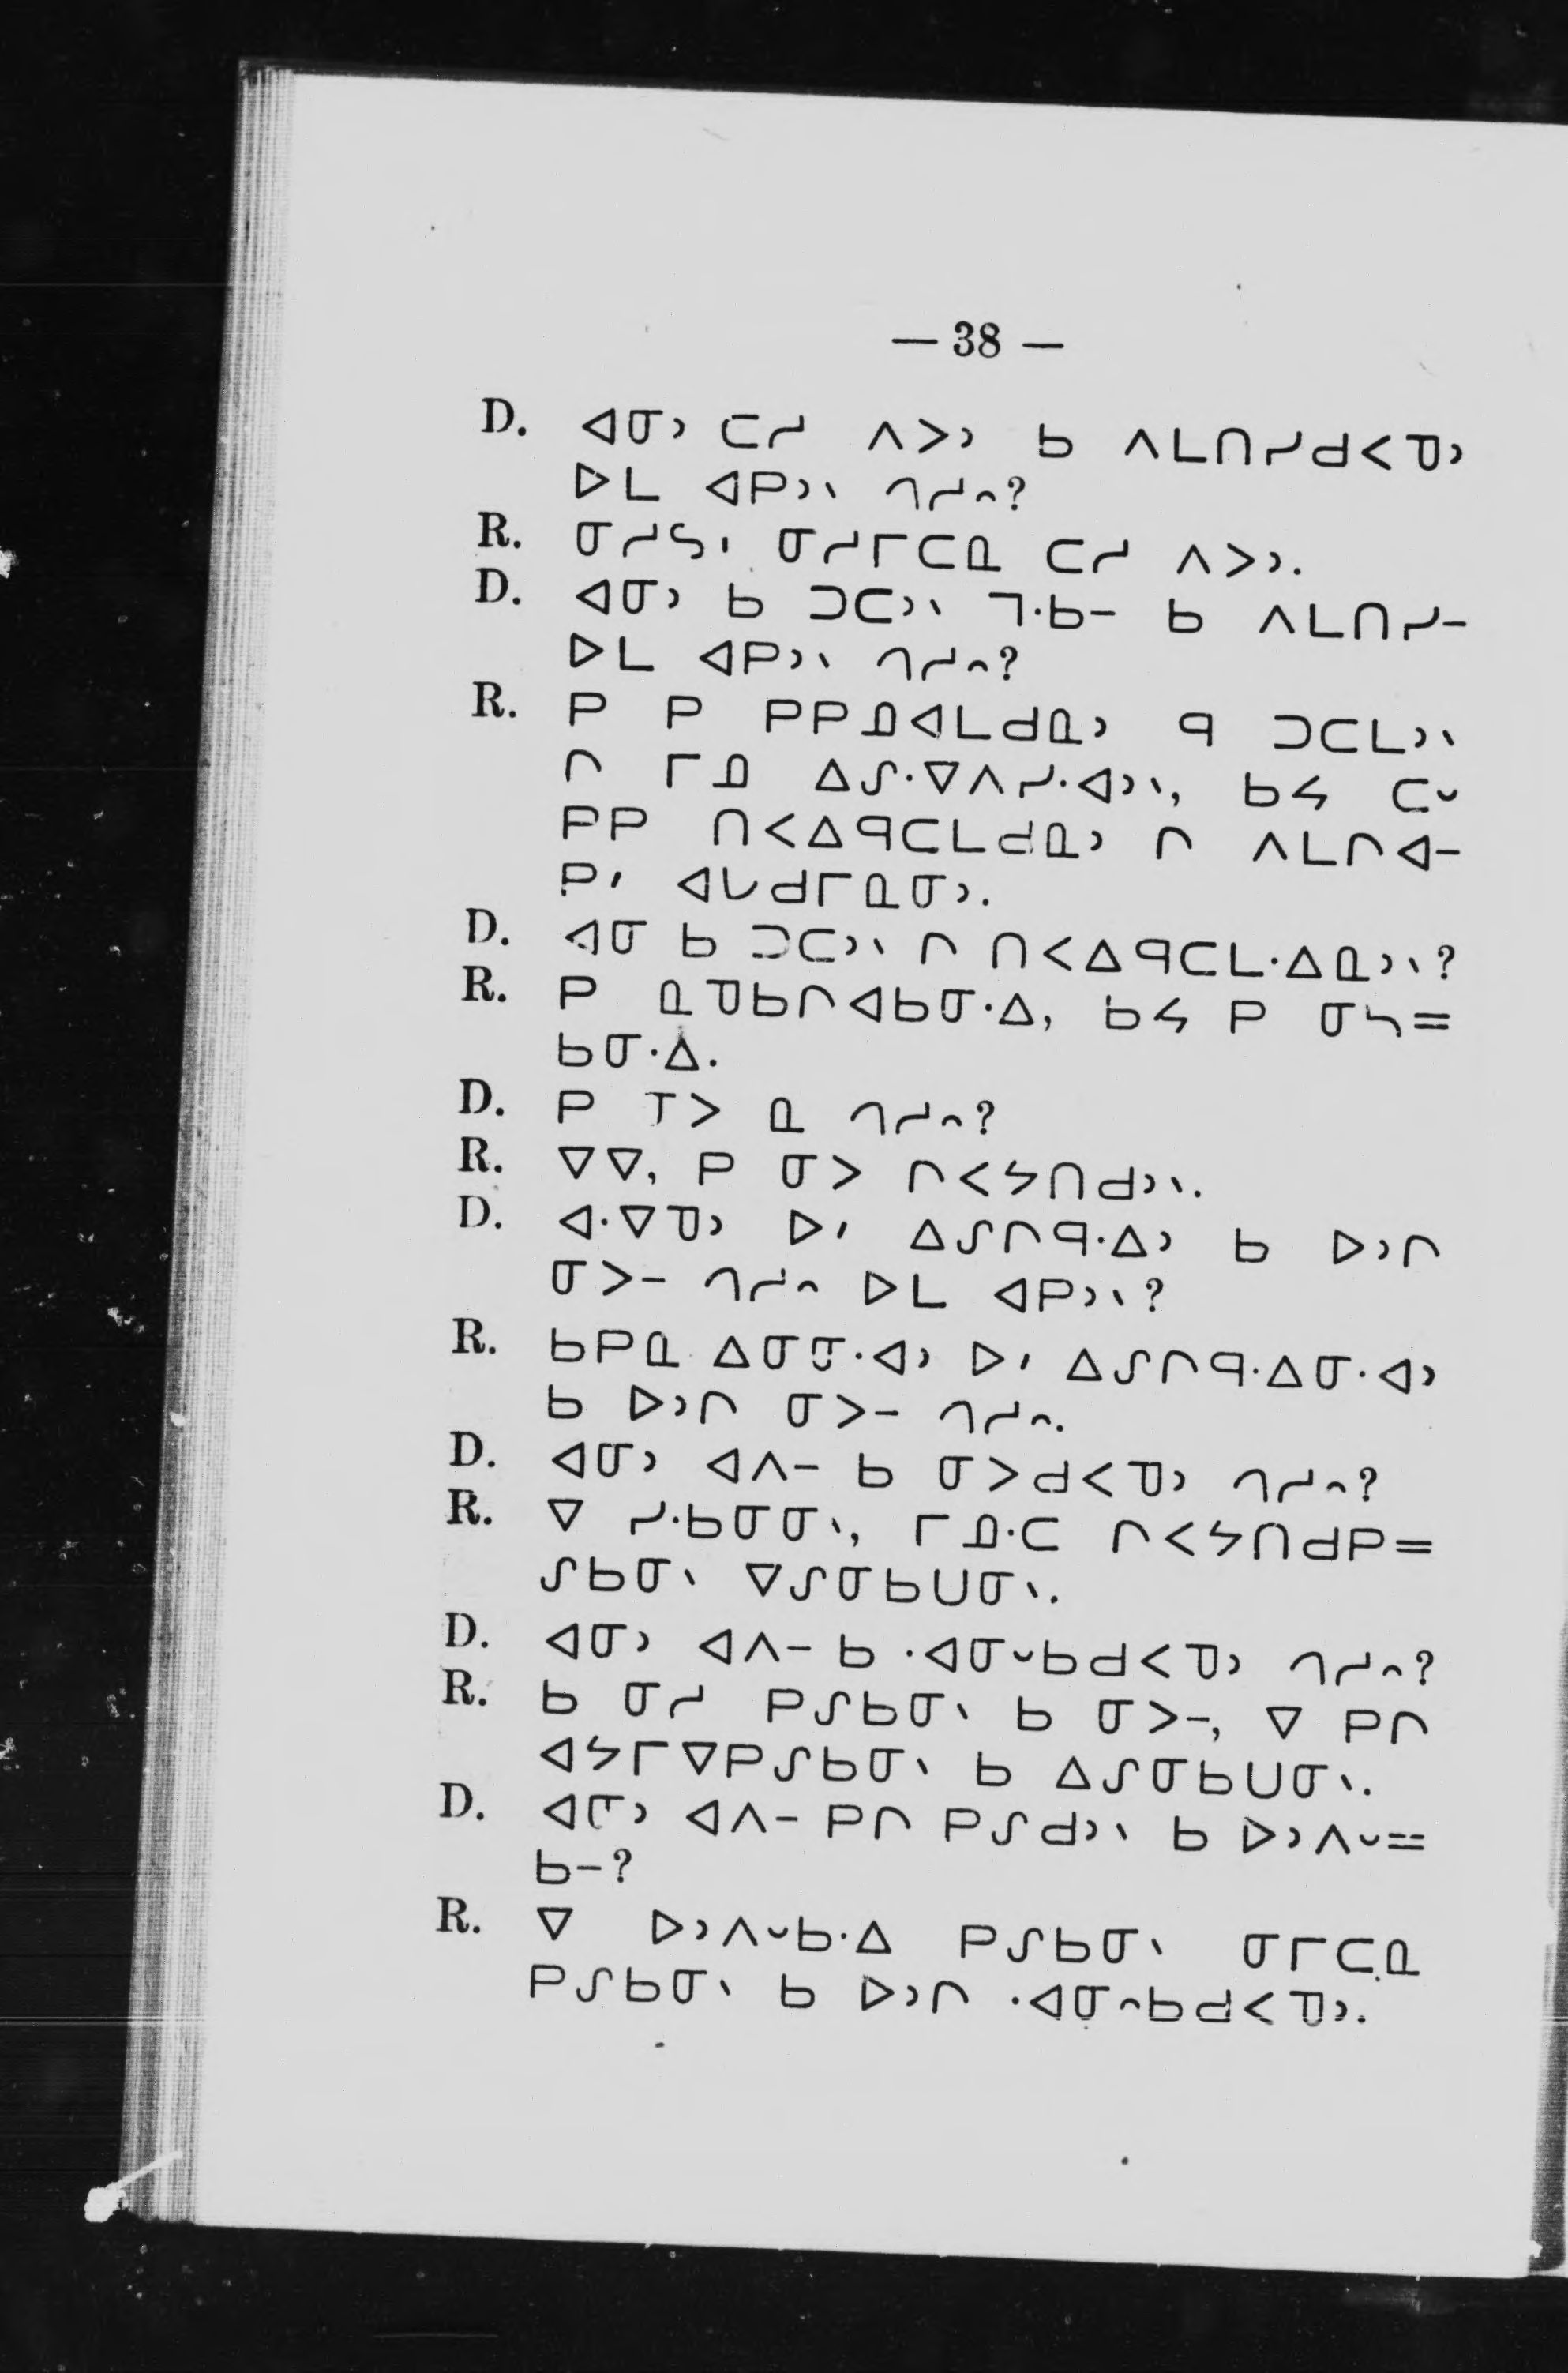 — 38 —
D. ᐊᓂᐣ ᑕᓱ ᐱᐳᐣ ᑲ ᐱᒪᑎᓯᑯᐸᓀᐣ
ᐅᒪ ᐊᑭᐣᐠ ᒉᓱᐢ?
R. ᓂᓱᔕᑊ ᓂᓱᒥᑕᓇ ᑕᓱ ᐱᐳᐣ.
D. ᐊᓂᐣ ᑲ ᑐᑕᐣᐠ ᒣᐧᑲᐨ ᑲ ᐱᒪᑎᓯᐨ
ᐅᒪ ᐊᑭᐣᐠ ᒉᓱᐢ?
R. ᑭ ᑭ ᑭᑭᓄᐊᒪᑯᓇᐣ ᑫ ᑐᑕᒪᐣᐠ
ᒋ ᒥᓄ ᐃᔑᐧᐁᐱᓯᐧᐊᐣᐠ, ᑲᔦ ᑕᐡ
ᑭᑭ ᑎᐸᐃᑫᑕᒪᑯᓇᐣ ᒋ ᐱᒪᒋᐊ-
ᑭᐟ ᐊᒐᑯᒥᓇᓂᐣ.
D. ᐊᓂ ᑲ ᑐᑕᐣᐠ ᒋ ᑎᐸᐃᑫᑕᒪᐧᐃᓇᐣᐠ?
R. ᑭ ᓇᓀᑲᒋᐊᑲᓂᐧᐃ, ᑲᔦ ᑭ ᓂᓴ=
ᑲᓂᐧᐃ.
D. ᑭ ᒉᐳ ᓇ ᒉᓱᐢ?
R. ᐁᐁ, ᑭ ᓂᐳ ᒋᐸᔭᑎᑯᐣᐠ.
D. ᐊᐧᐁᓀᐣ ᐅᐟ ᐃᔑᒋᑫᐧᐃᐣ ᑲ ᐅᐣᒋ
ᓂᐳᐨ ᒉᓱᐢ ᐅᒪ ᐊᑭᐣᐠ?
R. ᑲᑭᓇ ᐃᓂᓂᐧᐊᐣ ᐅᐟ ᐃᔑᒋᑫᐧᐃᓂᐧᐊᐣ
ᑲ ᐅᐣᒋ ᓂᐳᐨ ᒉᓱᐢ.
D. ᐊᓂᐣ ᐊᐱᐨ ᑲ ᓂᐳᑯᐸᓀᐣ ᒉᓱᐢ?
R. ᐁ ᓯᐧᑲᓂᓂᐠ, ᒥᓄᐧᑕ ᒋᐸᔭᑎᑯᑭ=
ᔑᑲᓂᐠ ᐁᔑᓂᑲᑌᓂᐠ.
D. ᐊᓂᐣ ᐊᐱᐨ ᑲ ᐧᐊᓂᐡᑲᑯᐸᓀᐣ ᒉᓱᐢ?
R. ᑲ ᓂᓱ ᑭᔑᑲᓂᐠ ᑲ ᓂᐳᐨ, ᐁ ᑭᒋ
ᐊᔭᒥᐁᑭᔑᑲᓂᐠ ᑲ ᐃᔑᓂᑲᑌᓂᐠ.
D. ᐊᓂᐣ ᐊᐱᐨ ᑭᒋ ᑭᔑᑯᐣᐠ ᑲ ᐅᐣᐱᐡ=
ᑲᐨ?
R. ᐁ ᐅᐣᐱᐡᑲᐧᐃ ᑭᔑᑲᓂᐠ ᓂᒥᑕᓇ
ᑭᔑᑲᓂᐠ ᑲ ᐅᐣᒋ ᐧᐊᓂᐢᑲᑯᐸᓀᐣ.